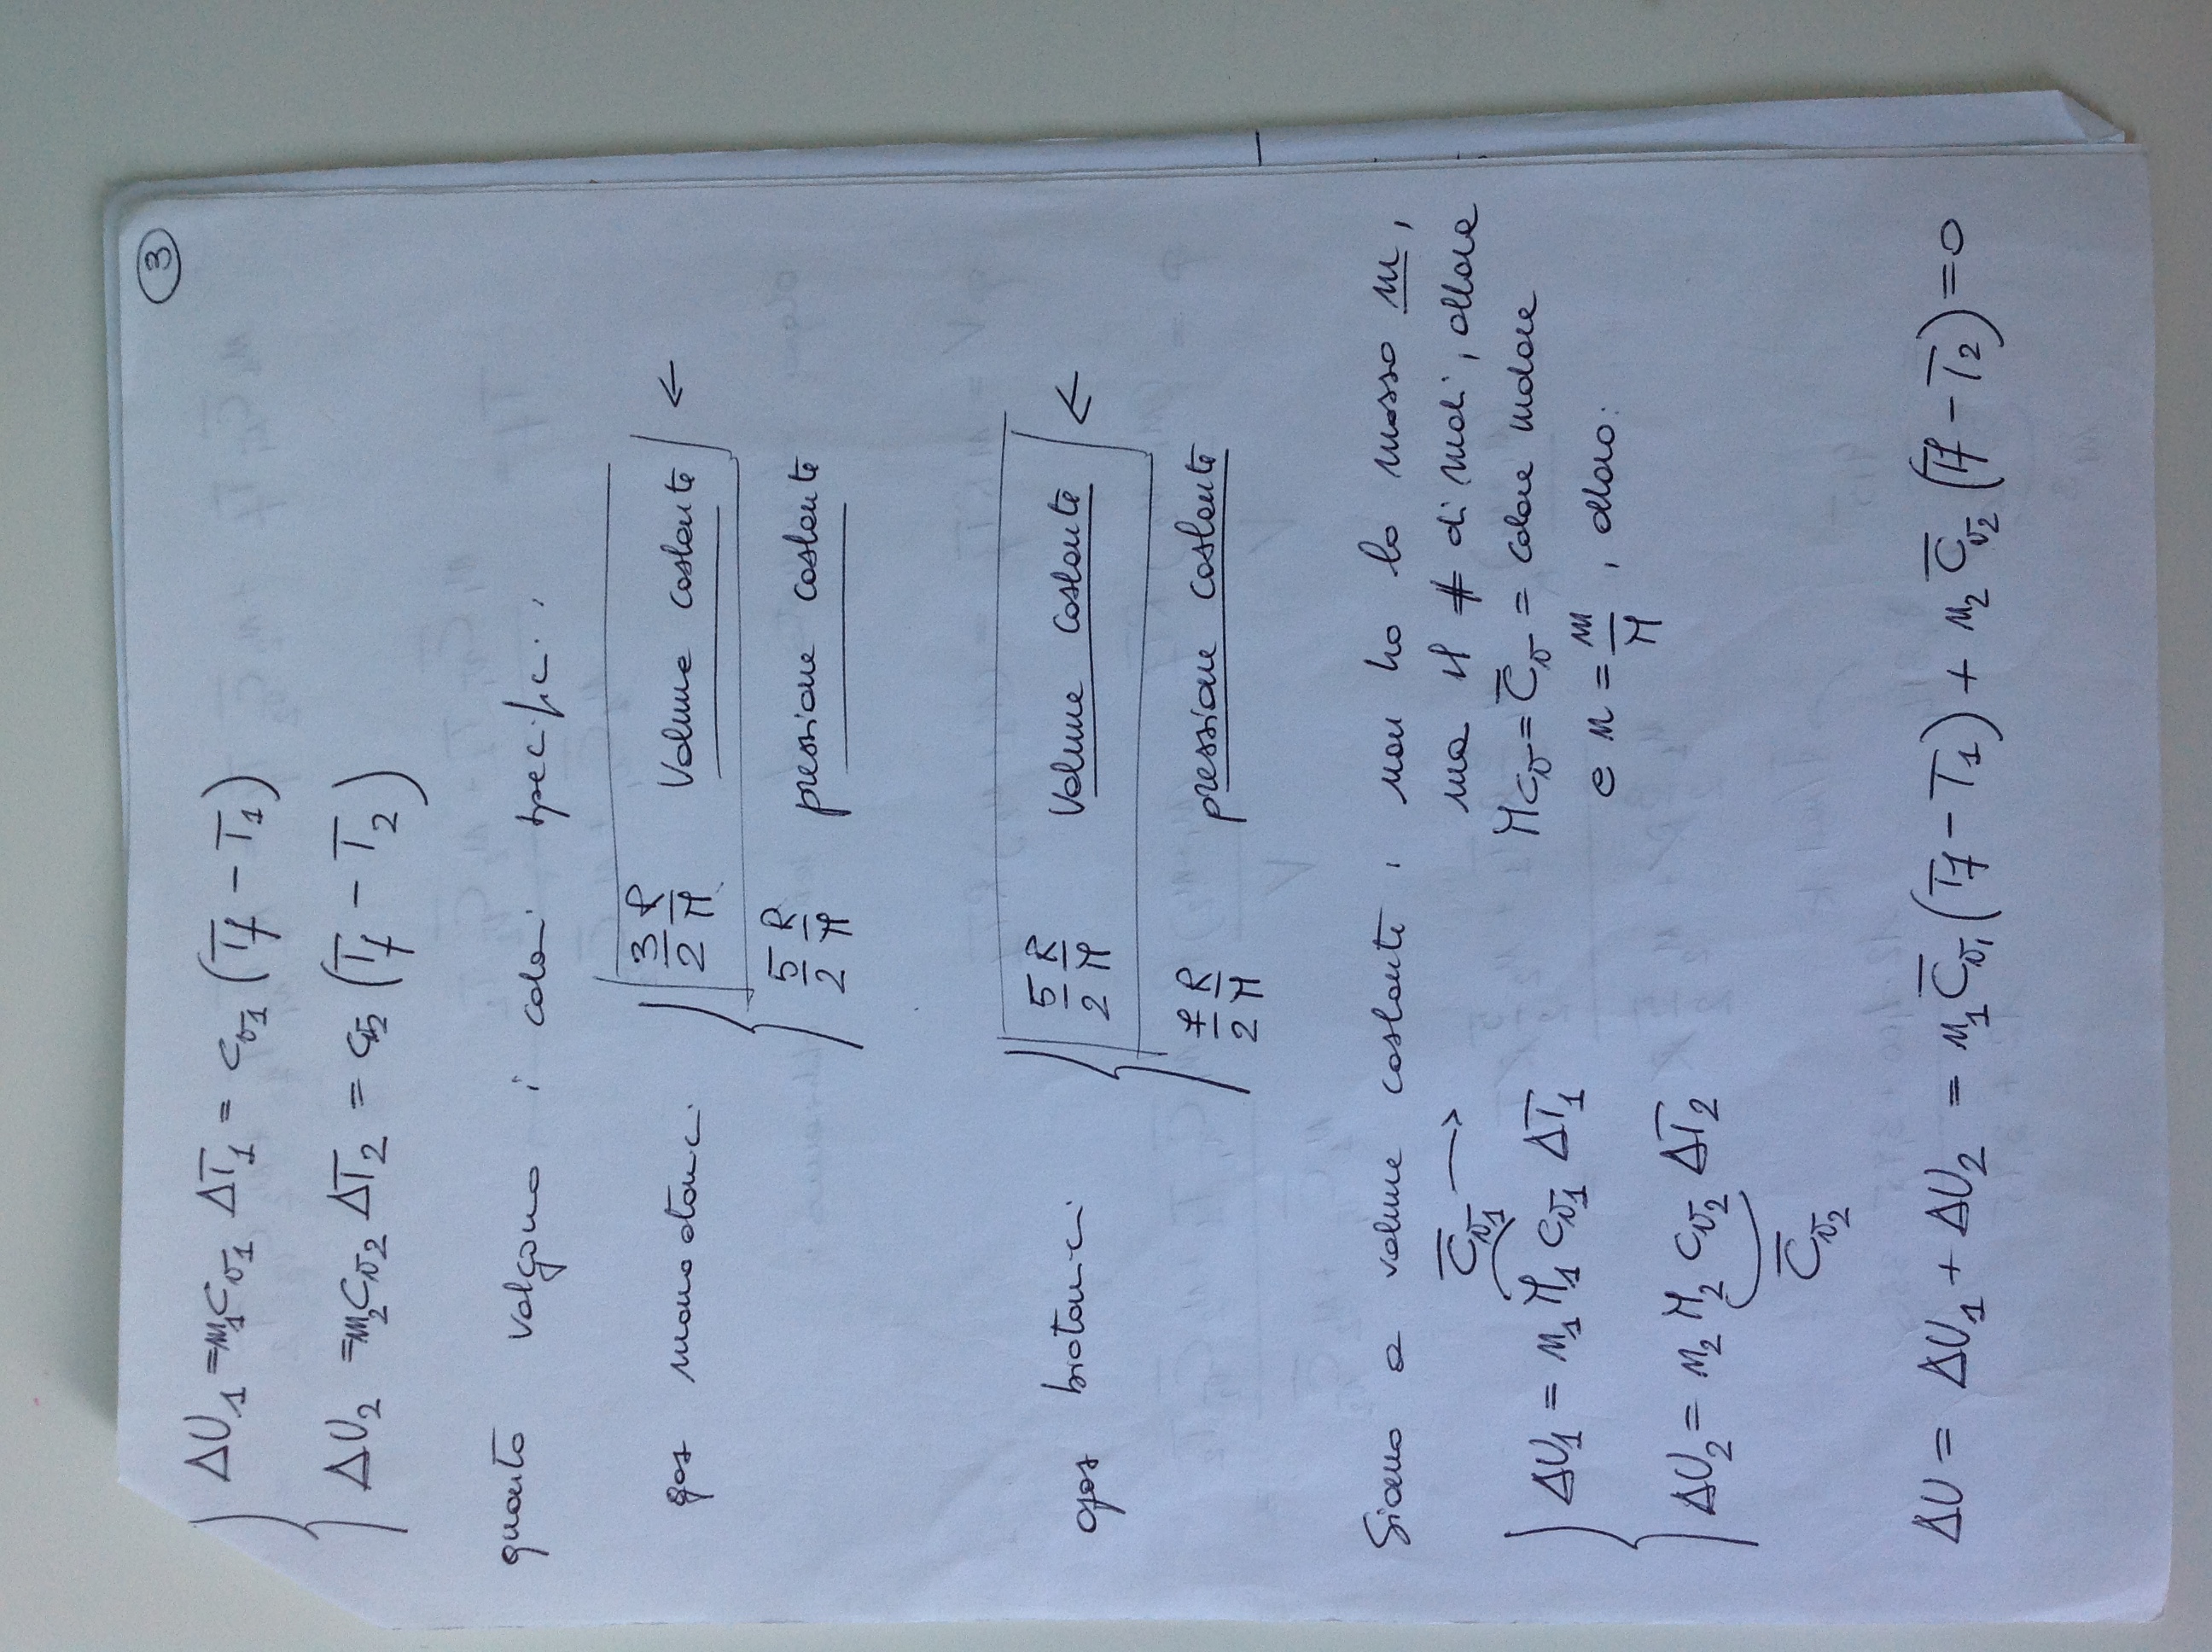 3
ΔU₁ = m₁c_v₁ ΔT₁ = c_v₁ (T_f − T₁)
ΔU₂ = m₂c_v₂ ΔT₂ = c_v₂ (T_f − T₂)
quanto valgono i calori specifici:
gas monoatomici { 3/2 R/M Volume costante ←
5/2 R/M pressione costante
gas biatomici { 5/2 R/M Volume costante ←
7/2 R/M pressione costante
Siamo a volume costante: non ho la massa m,
ma il # di moli, allora
C̅_v₁ →
M c_v = C̅_v = calore molare
ΔU₁ = n₁ M₁ c_v₁ ΔT₁
e n = m/M, allora:
ΔU₂ = n₂ M₂ c_v₂ ΔT₂
C̅_v₂
ΔU = ΔU₁ + ΔU₂ = n₁ C̅_v₁ (T_f − T₁) + n₂ C̅_v₂ (T_f − T₂) = 0